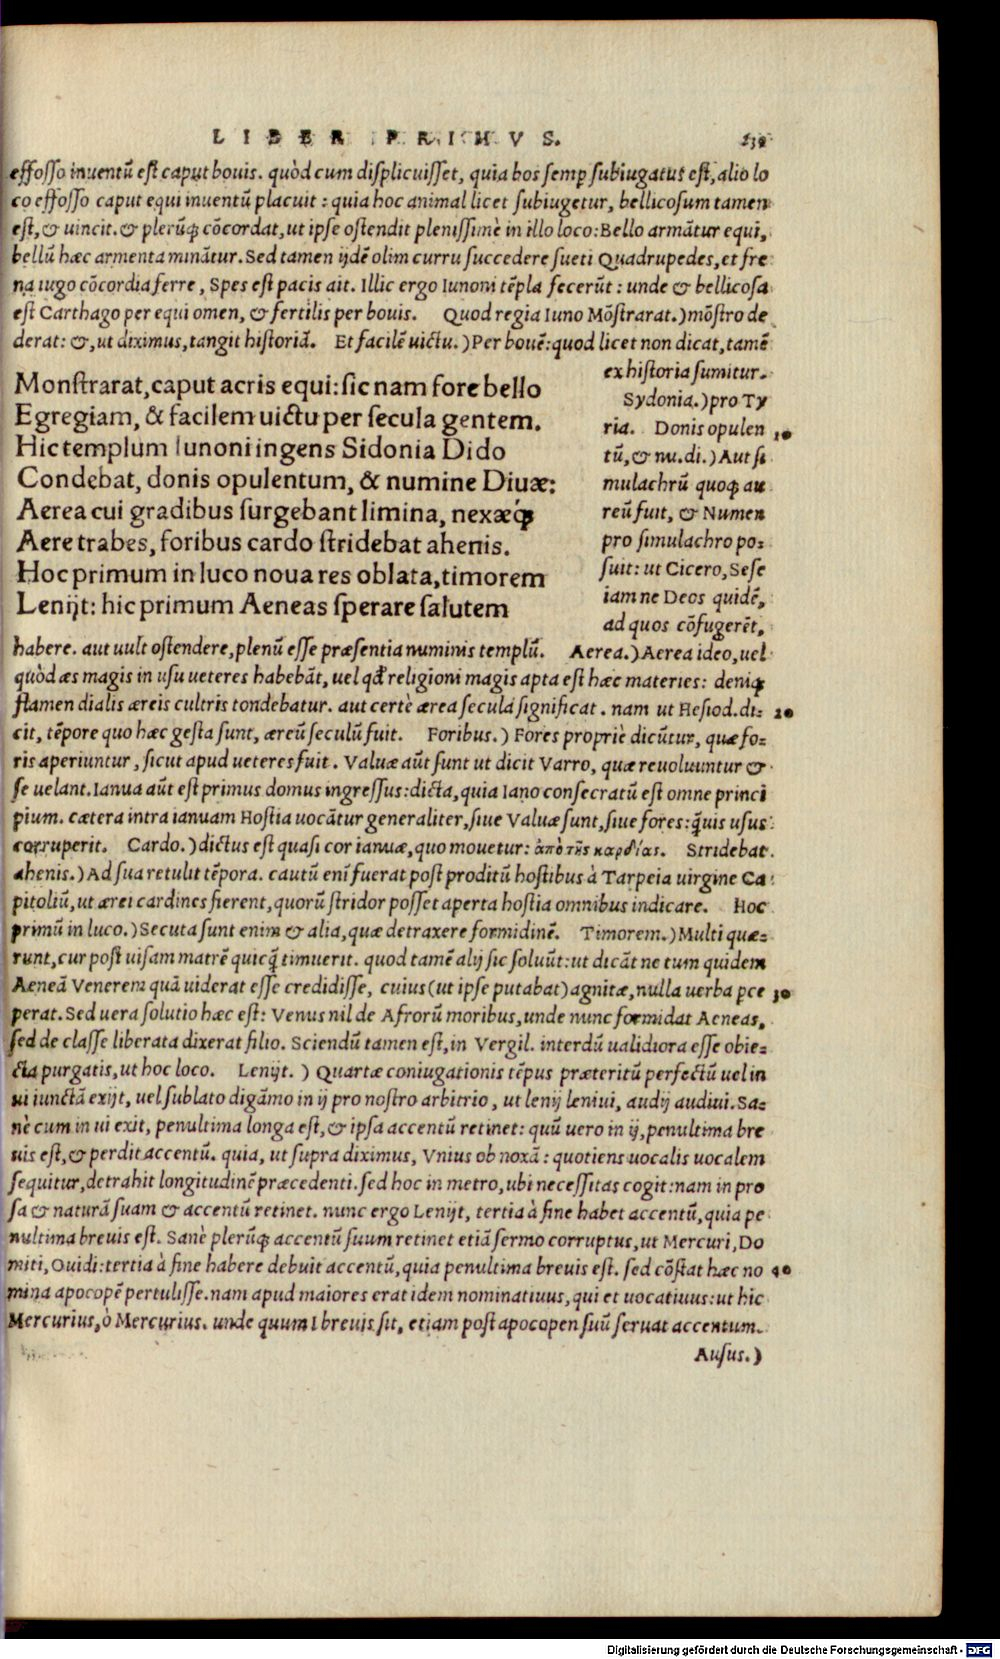 LIBER PRIMVS. 139
effosso inuentũ est caput bouis. quòd cum displicuisset, quia bos semp subiugatus est, alio lo
co effosso caput equi inuentũ placuit : quia hoc animal licet subiugetur, bellicosum tamen
est, & uincit. & plerũq; cõcordat, ut ipse ostendit plenissimè in illo loco: Bello armãtur equi,
bellũ hæc armenta minãtur. Sed tamen ijdẽ olim curru succedere sueti Quadrupedes, et fre
na iugo cõcordia ferre, Spes est pacis ait. Illic ergo Iunoni tẽpla fecerũt : unde & bellicosa
est Carthago per equi omen, & fertilis per bouis. Quod regia Iuno Mõstrarat.) mõstro de
derat: &, ut diximus, tangit historiã. Et facilẽ uictu.) Per bouẽ: quod licet non dicat, tamẽ
ex historia sumitur.
Sydonia.) pro Ty
ria. Donis opulen 10
tũ, & nu. di.) Aut si
mulachrũ quoq; au
reũ fuit, & Numen
pro simulachro po=
suit: ut Cicero, Sese
iam ne Deos quidẽ,
ad quos cõfugerẽt,
Monstrarat, caput acris equi: sic nam fore bello
Egregiam, & facilem uictu per secula gentem.
Hic templum Iunoni ingens Sidonia Dido
Condebat, donis opulentum, & numine Diuæ:
Aerea cui gradibus surgebant limina, nexæq́;
Aere trabes, foribus cardo stridebat ahenis.
Hoc primum in luco noua res oblata, timorem
Lenijt: hic primum Aeneas sperare salutem
habere. aut uult ostendere, plenũ esse præsentia numinis templũ. Aerea.) Aerea ideo, uel
quòd æs magis in usu ueteres habebãt, uel qđ religioni magis apta est hæc materies: deniq;
flamen dialis æreis cultris tondebatur. aut certè ærea secula significat. nam ut Hesiod. di= 20
cit, tẽpore quo hæc gesta sunt, æreũ seculũ fuit. Foribus.) Fores propriè dicũtur, quæ fo=
ris aperiuntur, sicut apud ueteres fuit. Valuæ aũt sunt ut dicit Varro, quæ reuoluuntur &
se uelant. Ianua aũt est primus domus ingressus: dicta, quia Iano consecratũ est omne princi
pium. cætera intra ianuam Hostia uocãtur generaliter, siue Valuæ sunt, siue fores: q̃uis usus
corruperit. Cardo.) dictus est quasi cor ianuæ, quo mouetur: ἀπὸ τῆς καρδίας. Stridebat
ahenis.) Ad sua retulit tẽpora. cautũ enĩ fuerat post proditũ hostibus à Tarpeia uirgine Ca
pitoliũ, ut ærei cardines fierent, quorũ stridor posset aperta hostia omnibus indicare. Hoc
primũ in luco.) Secuta sunt enim & alia, quæ detraxere formidinẽ. Timorem.) Multi quæ=
runt, cur post uisam matrẽ quicq̃ timuerit. quod tamẽ alij sic soluũt: ut dicãt ne tum quidem
Aeneã Venerem quã uiderat esse credidisse, cuius (ut ipse putabat) agnitæ, nulla uerba pce 30
perat. Sed uera solutio hæc est: Venus nil de Afrorũ moribus, unde nunc formidat Aeneas,
sed de classe liberata dixerat filio. Sciendũ tamen est, in Vergil. interdũ ualidiora esse obie=
cta purgatis, ut hoc loco. Lenijt. ) Quartæ coniugationis tẽpus præteritũ perfectũ uel in
ui iunctã exijt, uel sublato digãmo in ij pro nostro arbitrio, ut lenij leniui, audij audiui. Sa=
nè cum in ui exit, penultima longa est, & ipsa accentũ retinet: quũ uero in ij, penultima bre
uis est, & perdit accentũ. quia, ut supra diximus, Vnius ob noxã : quotiens uocalis uocalem
sequitur, detrahit longitudinẽ præcedenti. sed hoc in metro, ubi necessitas cogit: nam in pro
sa & naturã suam & accentũ retinet. nunc ergo Lenijt, tertia à fine habet accentũ, quia pe
nultima breuis est. Sanè plerũq; accentũ suum retinet etiã sermo corruptus, ut Mercuri, Do
miti, Ouidi: tertia à fine habere debuit accentũ, quia penultima breuis est. sed cõstat hæc no 40
mina apocopẽ pertulisse. nam apud maiores erat idem nominatiuus, qui et uocatiuus: ut hic
Mercurius, ò Mercurius. unde quum I breuis sit, etiam post apocopen suũ seruat accentum.
Ausus.)
Digitalisierung gefördert durch die Deutsche Forschungsgemeinschaft - DFG